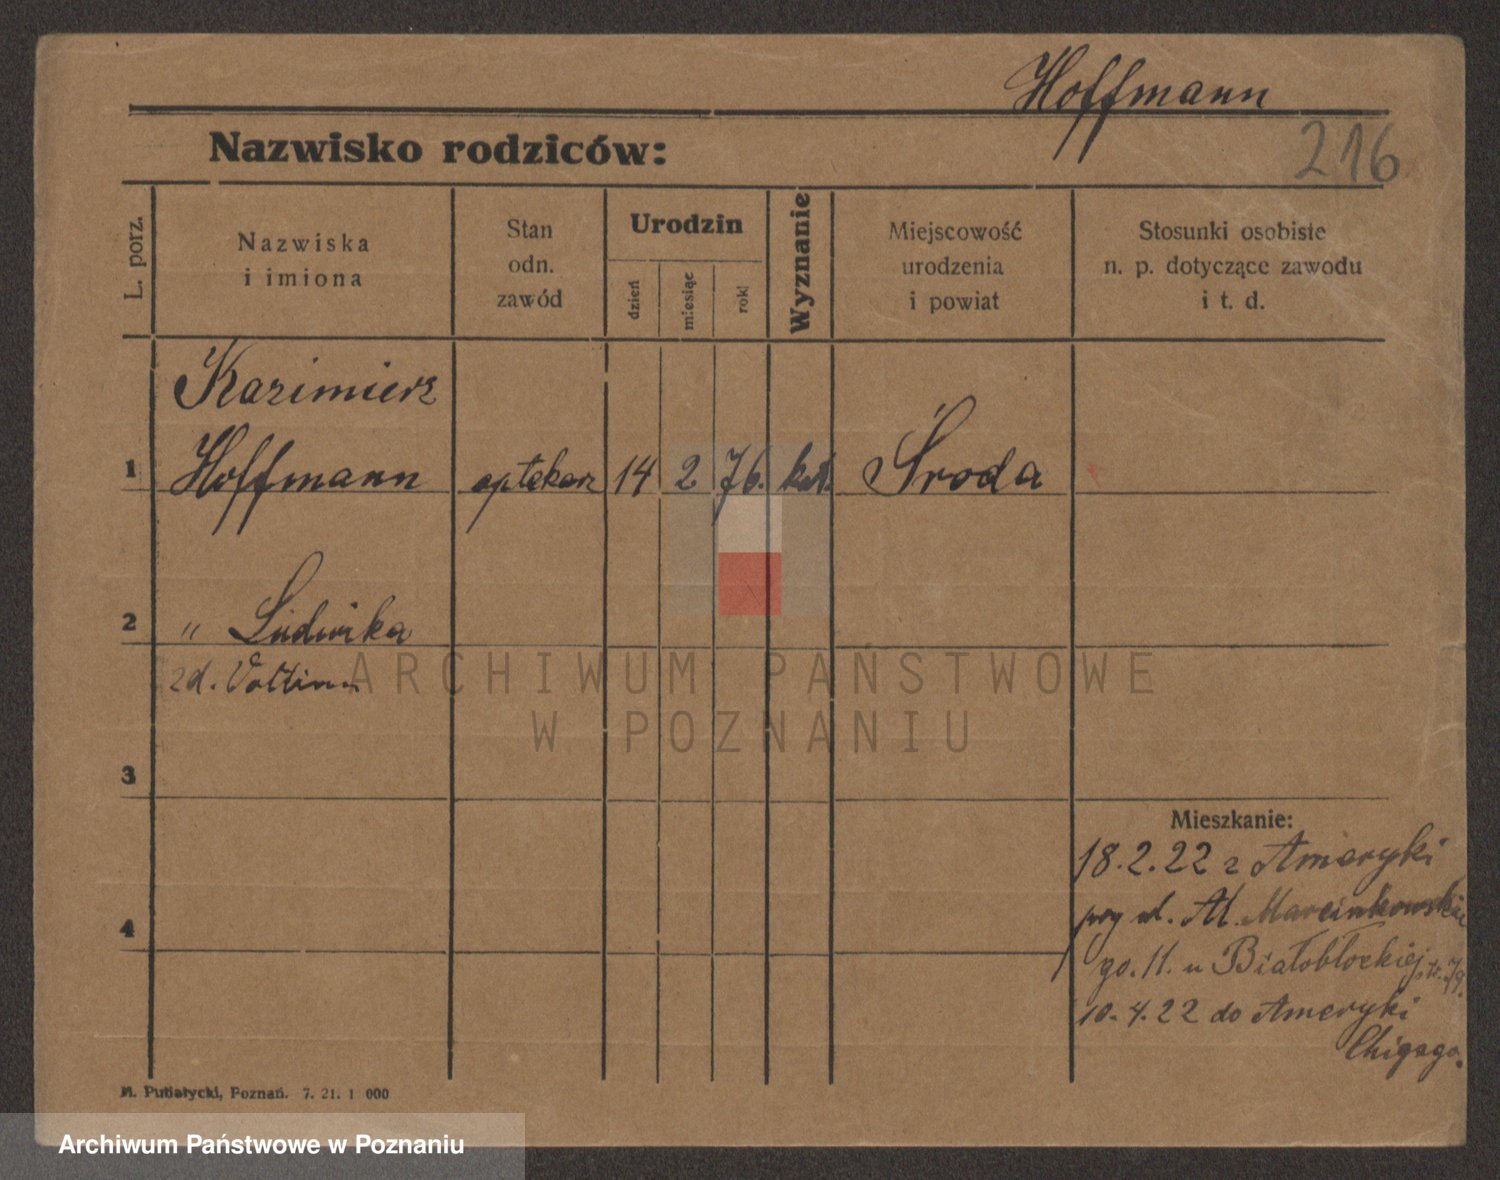 Hoffmann
216
Nazwisko rodziców:
L. porz.
Nazwiska
i imiona
Stan
odn.
zawód
Urodzin
dzień
miesiąc
rok
Wyznanie
Miejscowość
urodzenia
i powiat
Stosunki osobiste
n. p. dotyczące zawodu
i t. d.
Kazimierz
1 Hoffmann aptekarz 14 2 76. kat. Środa
2 " Ludwika
zd.
3
4
Mieszkanie:
18.2.22 z Ameryki
Al. Marcinkowskie
go. 11. u Białobłockiej
10.4.22 do Ameryki
Chigago.
M. Putiatycki, Poznań. 7. 21. 1 000
ARCHIWUM PAŃSTWOWE
W POZNANIU
Archiwum Państwowe w Poznaniu